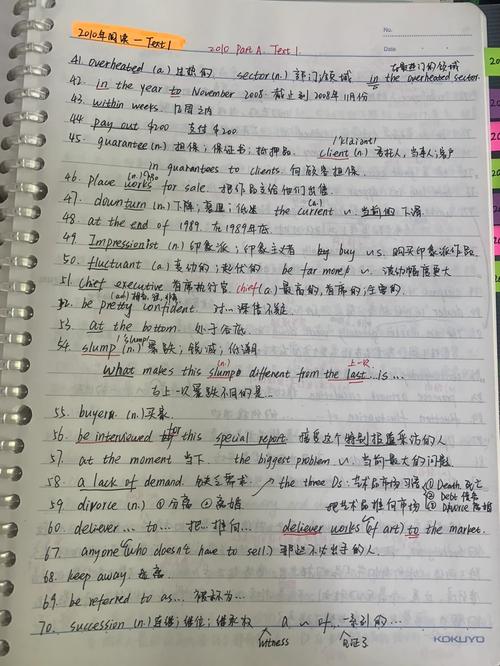 2010年阅读一Text 1
No.
Date
2010 Part A. Text 1
在最热门的领域
41 overheated (a.) 过热的. sector (n.) 部门、领域 in the overheated sector.
42. in the year to November 2008. 截止到2008年11月份
43. within weeks. 几周之内
44 pay out $200 支付$200
45. guarantee (n.) 担保; 保证书; 抵押品. client (n.) 委托人, 当事人; 客户
in guarantees to clients. 向顾客担保.
46. place works for sale. 把作品交给他们出售.
47. downturn (n.) 下降; 衰退; 低迷 the current ~. 当前的下滑.
48. at the end of 1989. 在1989年底.
49. Impressionist (n.) 印象派; 印象主义者 buy us. 购买印象派作品
50. fluctuant (a.) 变动的; 起伏的 be far more ~. 波动幅度更大
51. chief executive 首席执行官 chief (a.) 最高的, 首席的; 主要的.
52. be pretty confident. 对…深信不疑
53. at the bottom. 处于谷底.
54. slump (n.) 暴跌; 锐减; 低潮
上一次
What makes this slump different from the last...is...
与上一次暴跌不同的是...
55. buyer (n.) 买家.
56. be interviewed for this special report. 接受这个特别报道采访的人
57. at the moment 当下. the biggest problem ~. 当前最大的问题.
58. a lack of demand. 缺乏需求 the three Ds: 艺术品市场习语 ① Death 死亡
② Debt 债务
③ Divorce 离婚
59. divorce (n.) ① 分离 ② 离婚 把艺术品推向市场
60. deliever ... to ... 把...推向... deliever works (of art) to the market.
67. anyone (who doesn't have to sell) 那些不必出手的人.
68. keep away 远离
69. be referred to as... 被称为...
70. succession (n.) 连续; 继位; 继承权, a ~ of... 一系列的...
witness 见证了
KOKUYO